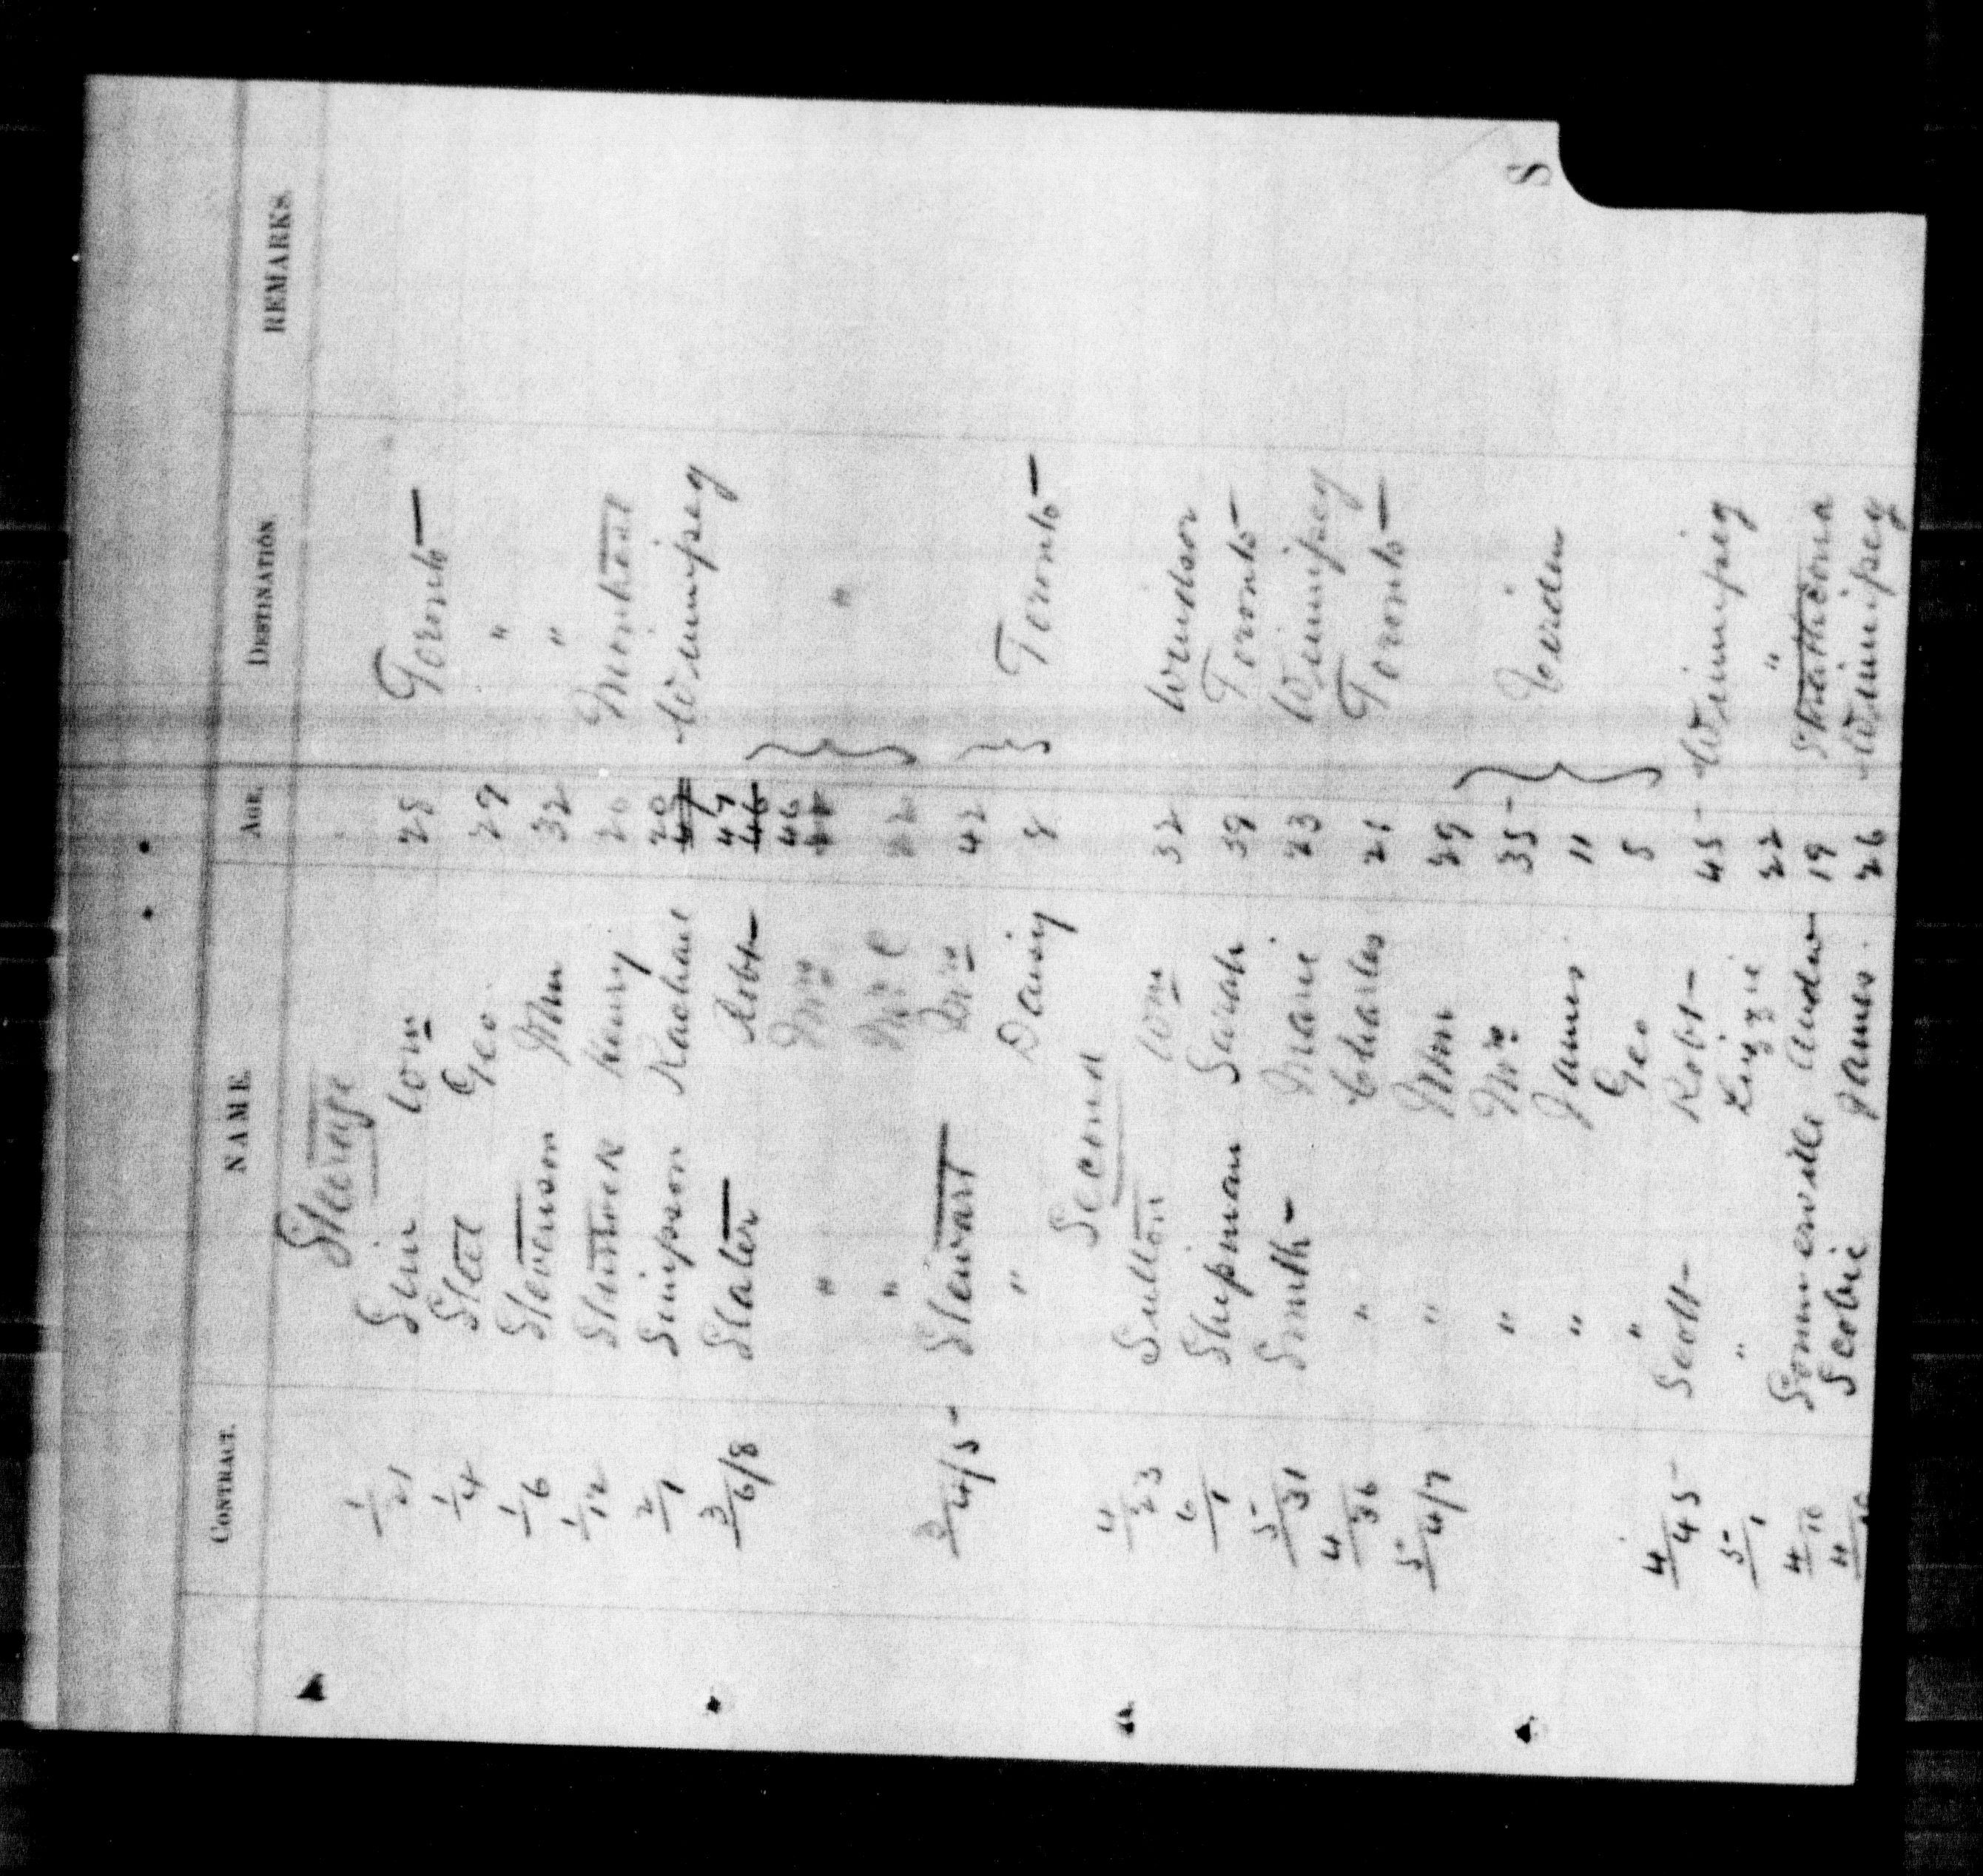 CONTRACT. NAME. AGE. DESTINATION REMARKS.
Steerage
1/21 Sim Wm 28 Toronto
1/4 Steel Geo 29 "
1/6 Stevenson Jno 32 "
1/12 Henry 20 Montreal
2/1 Simpson Rachael 20 Winnipeg
3/6/8 Slater Robt 49
" Mrs 46 "
" 22
3/4/5 Stewart 42
" Daisy 8 Toronto
Second
4/23 Sutton Wm 32 Windsor
6/1 Shipman Sarah 39 Toronto
5/31 Smith Marie 23 Winnipeg
4/36 " Charles 21 Toronto
5/4/7 " 29
" Mrs 35 Virden
" James 11
" Geo 5
4/45 Scott Robt 45 Winnipeg
5/1 " Lizzie 22 "
4/10 Sommerville Andw 19 Strathcona
Scobie James 26 Winnipeg
S